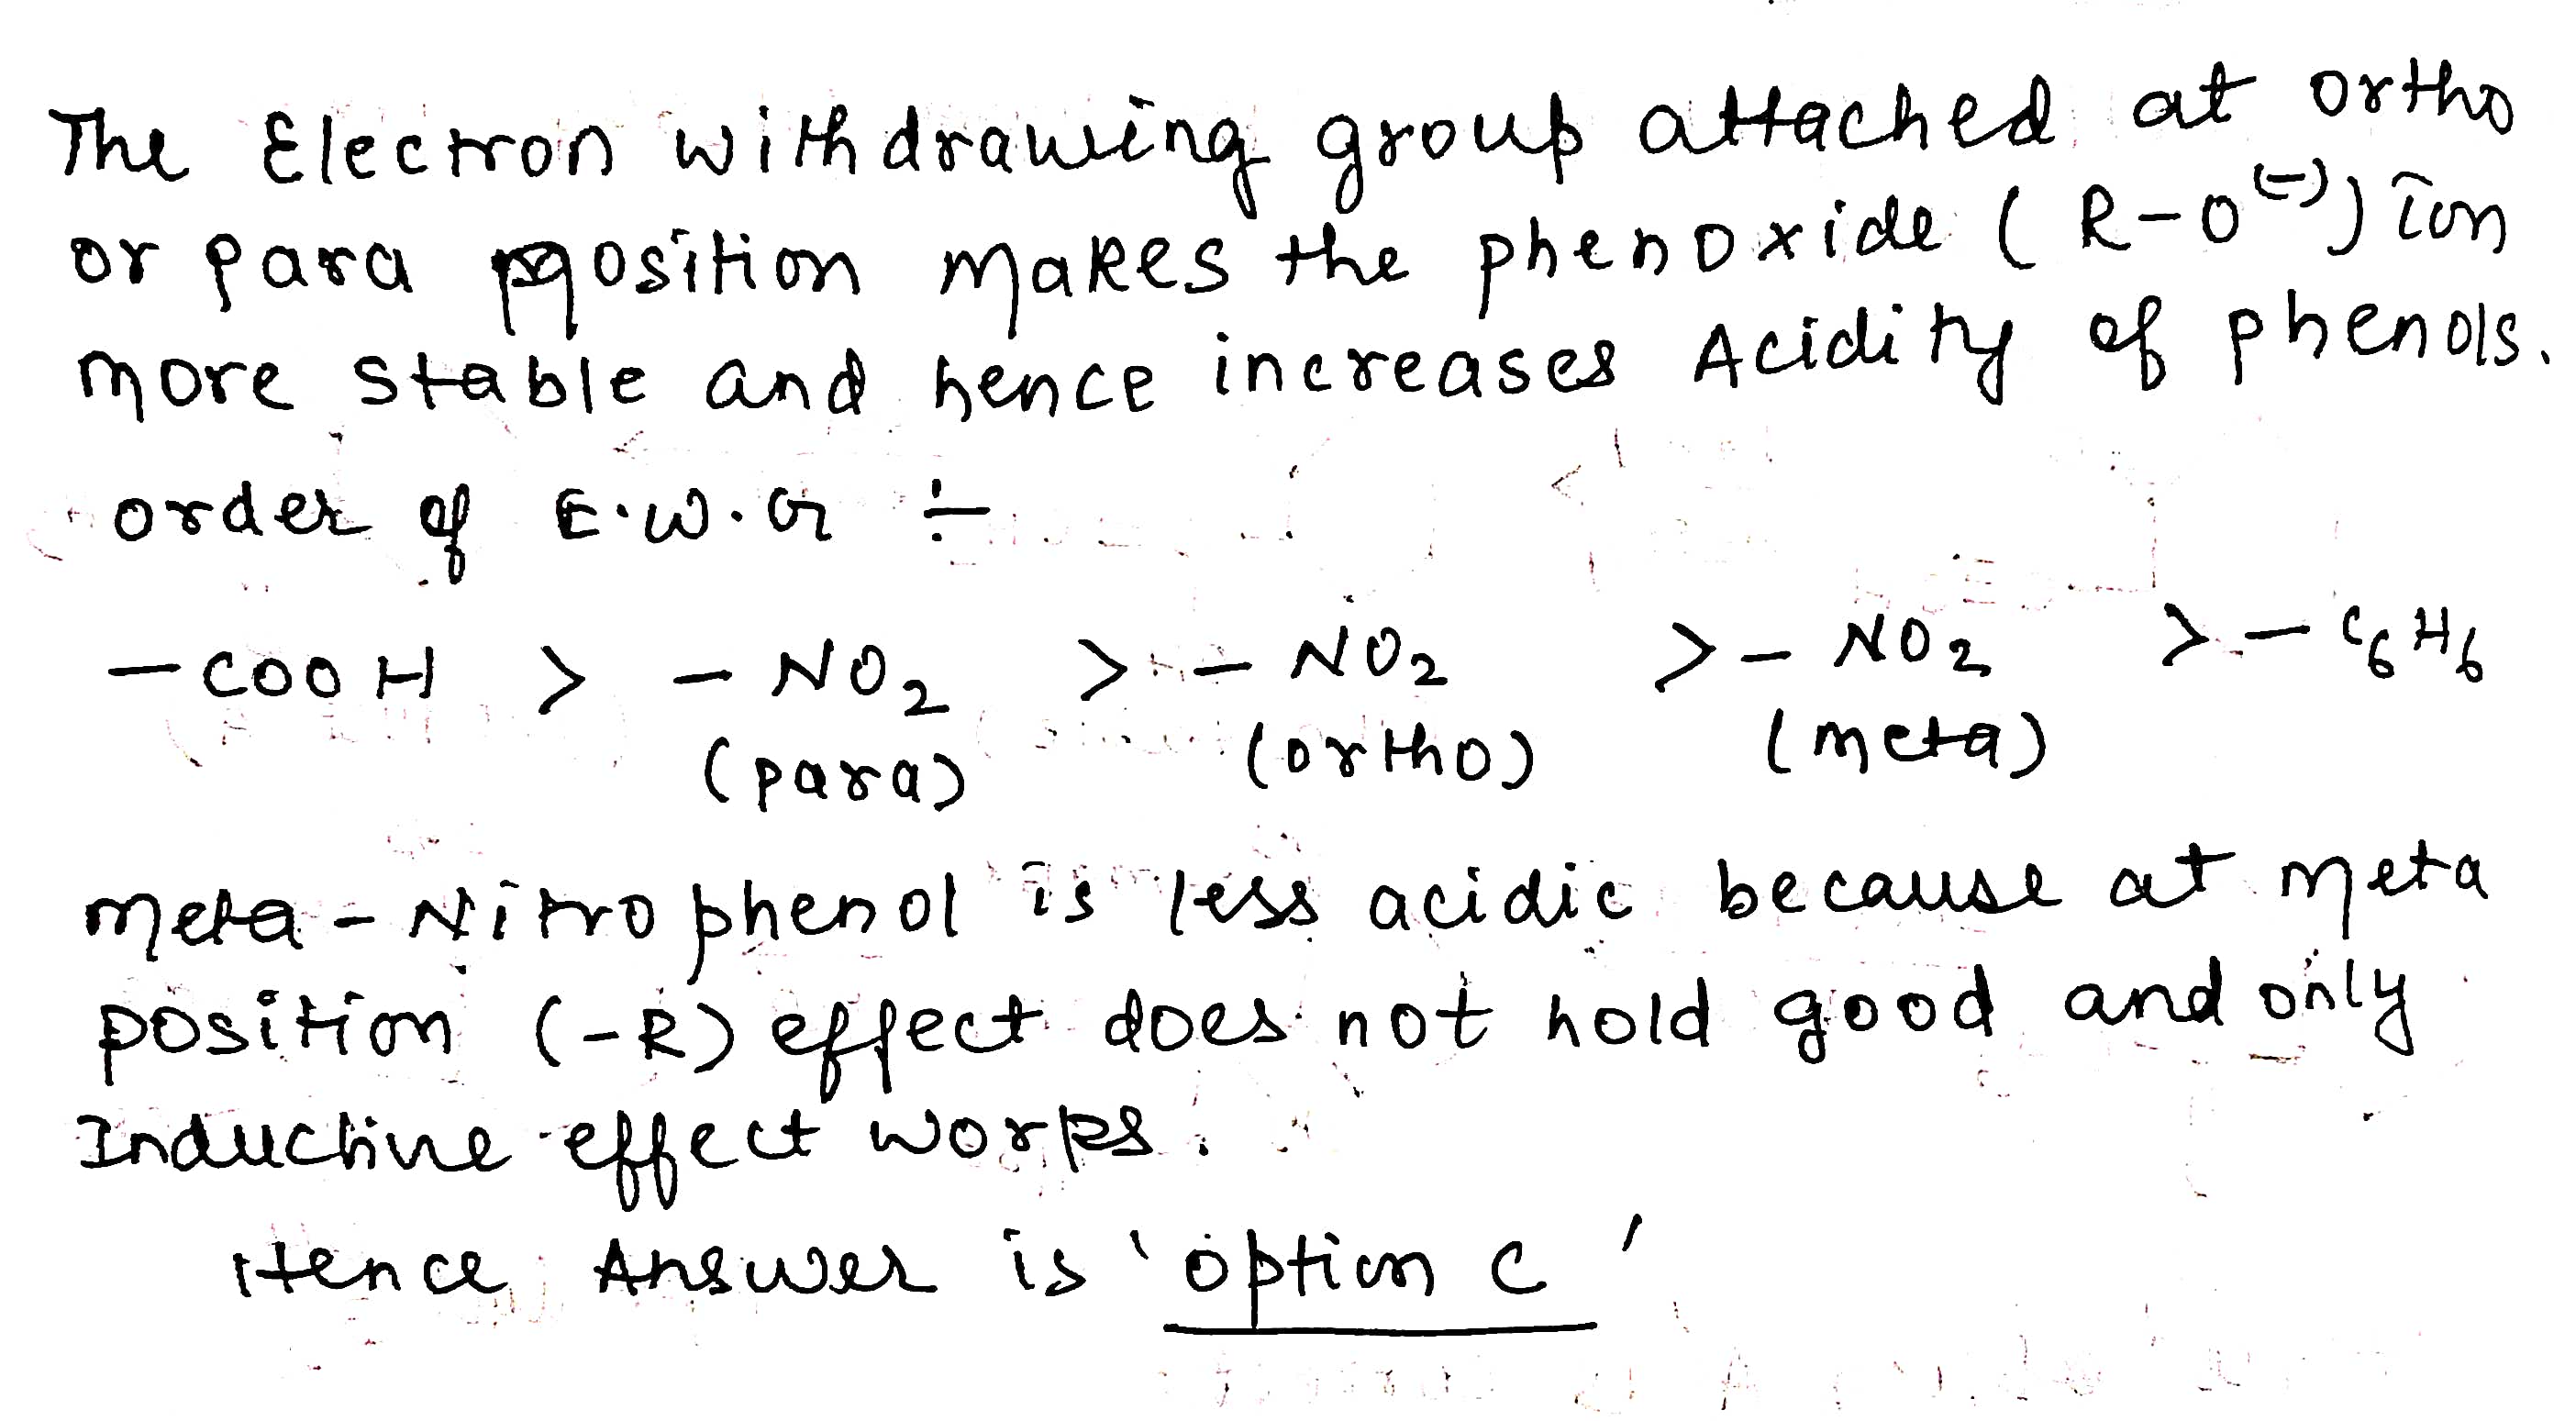 The Electron withdrawing group attached at ortho
or para position makes the phenoxide (R-O(-)) ion
more stable and hence increases Acidity of phenols.
order of E.W.G ÷
- COOH > - NO2 > - NO2 > - NO2 > - C6H6
(para) (ortho) (meta)
meta - Nitrophenol is less acidic because at meta
position (-R) effect does not hold good and only
Inductive effect works.
Hence Answer is 'option C'